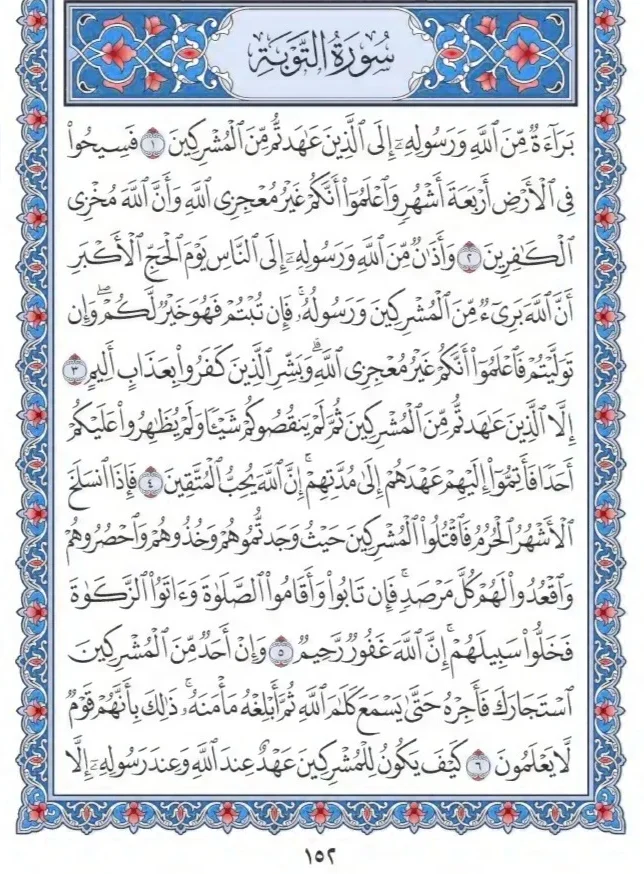 سُورَةُ التَّوْبَةِ
بَرَآءَةٌ مِّنَ ٱللَّهِ وَرَسُولِهِۦٓ إِلَى ٱلَّذِينَ عَٰهَدتُّم مِّنَ ٱلْمُشْرِكِينَ ١ فَسِيحُوا۟
فِى ٱلْأَرْضِ أَرْبَعَةَ أَشْهُرٍ وَٱعْلَمُوٓا۟ أَنَّكُمْ غَيْرُ مُعْجِزِى ٱللَّهِ وَأَنَّ ٱللَّهَ مُخْزِى
ٱلْكَٰفِرِينَ ٢ وَأَذَٰنٌ مِّنَ ٱللَّهِ وَرَسُولِهِۦٓ إِلَى ٱلنَّاسِ يَوْمَ ٱلْحَجِّ ٱلْأَكْبَرِ
أَنَّ ٱللَّهَ بَرِىٓءٌ مِّنَ ٱلْمُشْرِكِينَ وَرَسُولُهُۥ ۚ فَإِن تُبْتُمْ فَهُوَ خَيْرٌ لَّكُمْ ۖ وَإِن
تَوَلَّيْتُمْ فَٱعْلَمُوٓا۟ أَنَّكُمْ غَيْرُ مُعْجِزِى ٱللَّهِ ۗ وَبَشِّرِ ٱلَّذِينَ كَفَرُوا۟ بِعَذَابٍ أَلِيمٍ ٣
إِلَّا ٱلَّذِينَ عَٰهَدتُّم مِّنَ ٱلْمُشْرِكِينَ ثُمَّ لَمْ يَنقُصُوكُمْ شَيْـًٔا وَلَمْ يُظَٰهِرُوا۟ عَلَيْكُمْ
أَحَدًا فَأَتِمُّوٓا۟ إِلَيْهِمْ عَهْدَهُمْ إِلَىٰ مُدَّتِهِمْ ۚ إِنَّ ٱللَّهَ يُحِبُّ ٱلْمُتَّقِينَ ٤ فَإِذَا ٱنسَلَخَ
ٱلْأَشْهُرُ ٱلْحُرُمُ فَٱقْتُلُوا۟ ٱلْمُشْرِكِينَ حَيْثُ وَجَدتُّمُوهُمْ وَخُذُوهُمْ وَٱحْصُرُوهُمْ
وَٱقْعُدُوا۟ لَهُمْ كُلَّ مَرْصَدٍ ۚ فَإِن تَابُوا۟ وَأَقَامُوا۟ ٱلصَّلَوٰةَ وَءَاتَوُا۟ ٱلزَّكَوٰةَ
فَخَلُّوا۟ سَبِيلَهُمْ ۚ إِنَّ ٱللَّهَ غَفُورٌ رَّحِيمٌ ٥ وَإِنْ أَحَدٌ مِّنَ ٱلْمُشْرِكِينَ
ٱسْتَجَارَكَ فَأَجِرْهُ حَتَّىٰ يَسْمَعَ كَلَٰمَ ٱللَّهِ ثُمَّ أَبْلِغْهُ مَأْمَنَهُۥ ۚ ذَٰلِكَ بِأَنَّهُمْ قَوْمٌ
لَّا يَعْلَمُونَ ٦ كَيْفَ يَكُونُ لِلْمُشْرِكِينَ عَهْدٌ عِندَ ٱللَّهِ وَعِندَ رَسُولِهِۦٓ إِلَّا
١٥٢